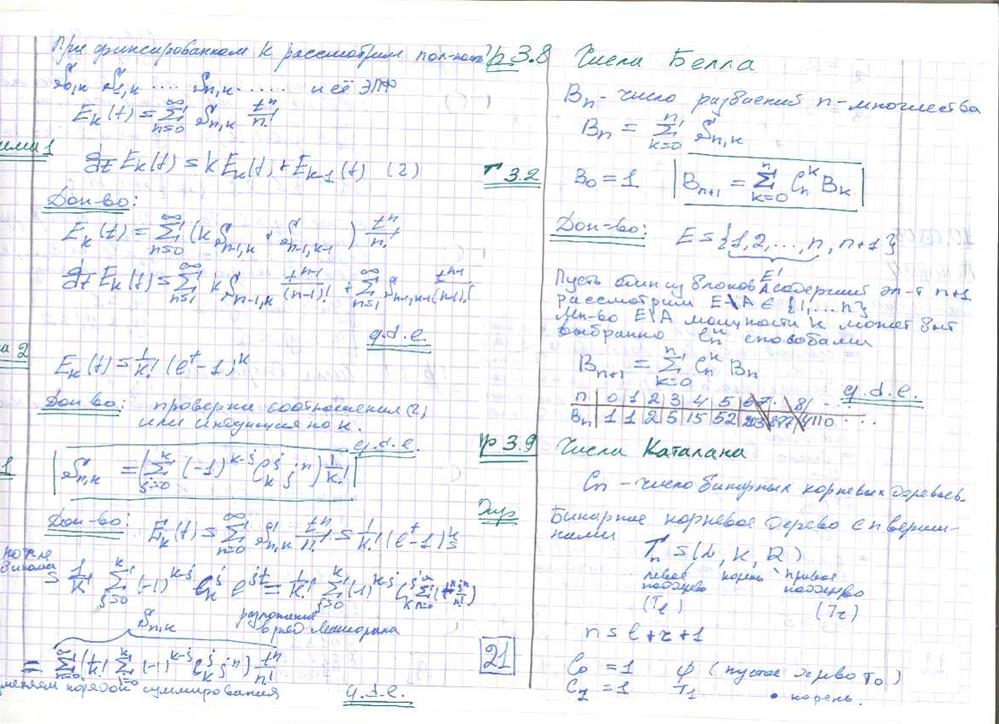 При фиксированном k рассмотрим
S₀,ₖ S₁,ₖ .... Sₙ,ₖ ..... и её ЭПФ
Eₖ(t) = ∑_{n=0}^{∞} Sₙ,ₖ tⁿ/n!
1
d/dt Eₖ(t) = k Eₖ(t) + Eₖ₋₁(t) (2)
Док-во:
Eₖ(t) = ∑_{n=0}^{∞} (k Sₙ₋₁,ₖ + Sₙ₋₁,ₖ₋₁) tⁿ/n!
d/dt Eₖ(t) = ∑_{n=1}^{∞} k Sₙ₋₁,ₖ tⁿ⁻¹/(n-1)! + ∑_{n=1}^{∞} Sₙ₋₁,ₖ₋₁ tⁿ⁻¹/(n-1)!
q.d.e.
2
Eₖ(t) = 1/k! (eᵗ-1)ᵏ
Док-во: проверки соотношения (2)
или индукция по k.
q.d.e.
1
Sₙ,ₖ = (∑_{j=0}^{k} (-1)^{k-j} Cₖʲ jⁿ) 1/k!
Док-во: Eₖ(t) = ∑_{n=0}^{∞} Sₙ,ₖ tⁿ/n! = 1/k! (eᵗ-1)ᵏ =
= 1/k! ∑_{j=0}^{k} (-1)^{k-j} Cₖʲ e^{jt} = 1/k! ∑_{j=0}^{k} (-1)^{k-j} Cₖʲ ∑_{n=0}^{∞} (tⁿjⁿ/n!)
Sₙ,ₖ
разложение
в ряд Маклорена
= ∑_{n=0}^{∞} (1/k! ∑_{j=0}^{k} (-1)^{k-j} Cₖʲ jⁿ) tⁿ/n!
меняем порядок суммирования q.d.e.
р 3.8 Числа Белла
Bₙ - число разбиений n-множества
Bₙ = ∑_{k=0}^{n} Sₙ,ₖ
Т 3.2 B₀ = 1 Bₙ₊₁ = ∑_{k=0}^{n} Cₙᵏ Bₖ
Док-во: E = {1,2,...,n, n+1}
E'
Пусть один из блоков A содержит эл-т n+1
рассмотрим E\A ∈ {1,...n}
Мн-во E\A мощности k может быт
выбранно Cₙᵏ способами
Bₙ₊₁ = ∑_{k=0}^{n} Cₙᵏ Bₙ
q.d.e.
n 0 1 2 3 4 5 6 7 8 ...
Bₙ 1 1 2 5 15 52 203 877 4110 ...
р 3.9 Числа Каталана
Cₙ - число бинарных корневых деревьев.
Опр Бинарное корневое дерево с n верши-
нами Tₙ = (L, K, R)
левое корень правое
поддерево поддерево
(Tₗ) (Tᵣ)
n = l + r + 1
21
C₀ = 1 φ (пустое дерево T₀)
C₁ = 1 T₁ • корень.